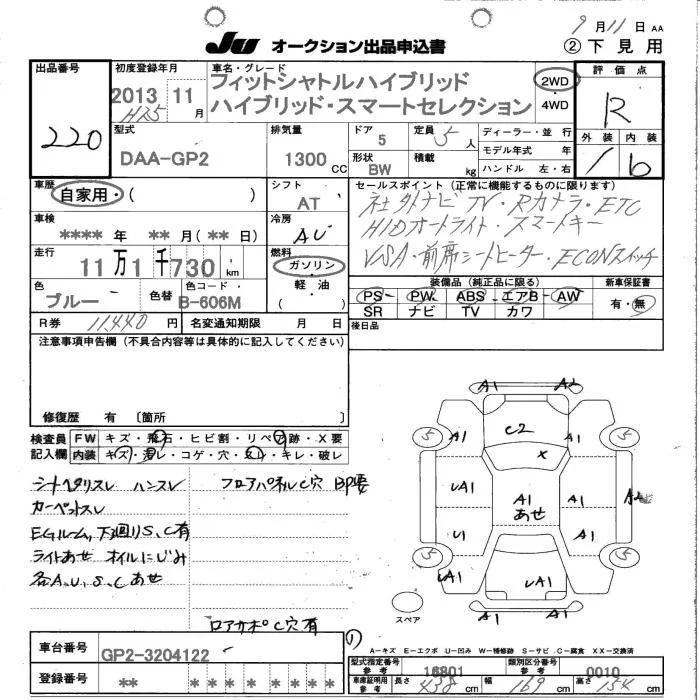 9月11日 AA
JU オークション出品申込書
②下見用
出品番号
220
初度登録年月
2013 11月
H25
車名・グレード
フィットシャトルハイブリッド
ハイブリッド・スマートセレクション
2WD
・4WD
評価点
R
外装 内装
1 b
型式
DAA-GP2
排気量
1300CC
ドア
5
定員
5人
形状
BW
積載
kg
ディーラー・並行
モデル年式 年
ハンドル 左・右
車歴
自家用・( )
シフト
AT
車検
****年 **月(**日)
冷房
AC
走行
11万1千730km
燃料
ガソリン・
軽油
( )
色
ブルー
色替
色コード・
B-606M
セールスポイント(正常に機能するものに限ります)
社外ナビ TV・Rカメラ・ETC
HIDオートライト・スマートキー
VSA・前席シートヒーター・ECONスイッチ
装備品(純正品に限る)
PS・PW・ABS・エアB・AW
SR ナビ TV カワ
新車保証書
有・無
R券 11,440円
名変通知期限 月 日
後日品
注意事項申告欄(不具合内容等は具体的に記入してください)
修復歴 有〔箇所 〕
検査員
記入欄
FW キズ・飛石・ヒビ割・リペア跡・X要
内装 キズ・汚レ・コゲ・穴・スレ・キレ・破レ
シートヘタリスレ ハンスレ
フロアパネルC穴 BP要
カーペットスレ
EGルーム,下廻りS,C有
ライトあせ オイルにじみ
各A,U,S,Cあせ
ロアサポC穴有
A1 A2
5 A1 C2 A1 5
X
UA1 A1 あせ A1 A2
U1 A1
5 A1 UA1 A1 5
A1 A1
スペア
A−キズ E−エクボ U−凹み W−補修跡 S−サビ C−腐食 XX−交換済
車台番号
GP2-3204122
登録番号
** * ** **
型式指定番号
参考
16801
類別区分番号
参考
0010
車庫証明用
参考
長さ 438cm
幅 169cm
高さ 154cm